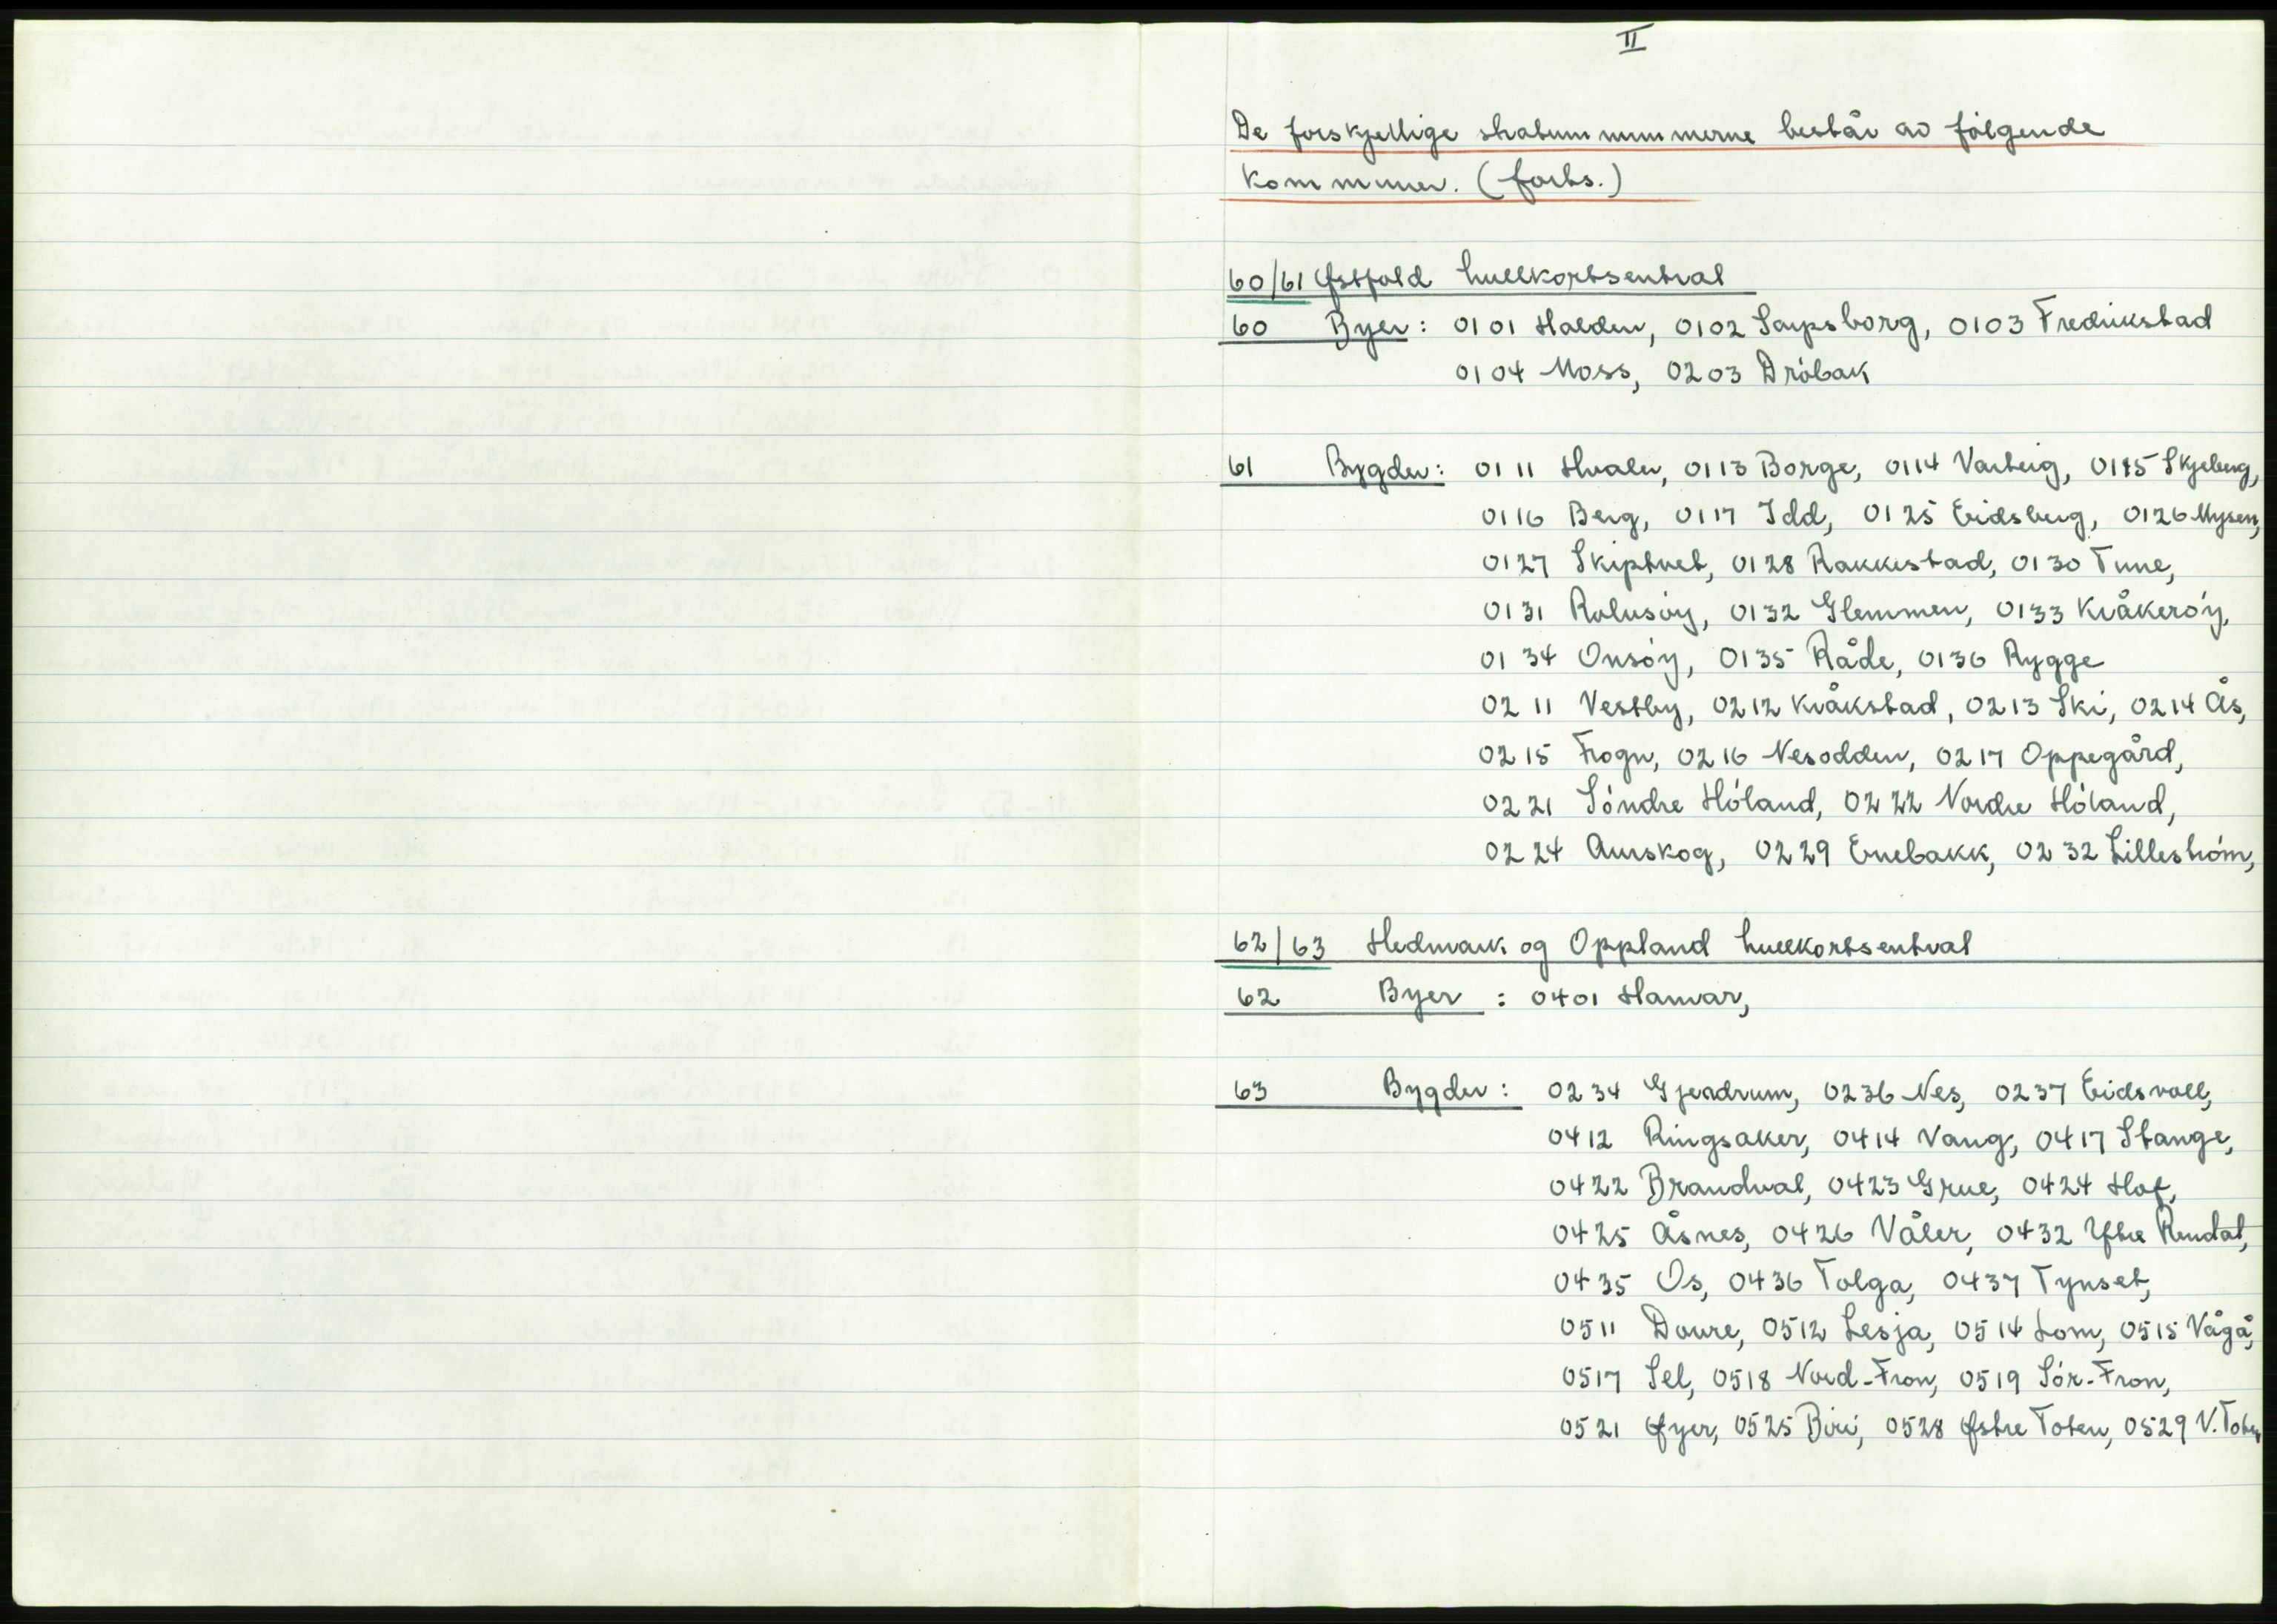 II
De forskjellige stratumnummerne består av følgende
kommuner. (forts.)
60/61 Østfold hullkortsentral
60 Byer: 0101 Halden, 0102 Sarpsborg, 0103 Fredrikstad
0104 Moss, 0203 Drøbak
61 Bygder: 0111 Hvaler, 0113 Borge, 0114 Varteig, 0115 Skjeberg,
0116 Berg, 0117 Idd, 0125 Eidsberg, 0126 Mysen,
0127 Skiptvet, 0128 Rakkestad, 0130 Tune,
0131 Rolvsøy, 0132 Glemmen, 0133 Kråkerøy,
0134 Onsøy, 0135 Råde, 0136 Rygge
0211 Vestby, 0212 Kråkstad, 0213 Ski, 0214 Ås,
0215 Frogn, 0216 Nesodden, 0217 Oppegård,
0221 Søndre Høland, 0222 Nordre Høland,
0224 Aurskog, 0229 Enebakk, 0232 Lillestrøm,
62/63 Hedmark og Oppland hullkortsentral
62 Byer : 0401 Hamar,
63 Bygder : 0234 Gjerdrum, 0236 Nes, 0237 Eidsvoll,
0412 Ringsaker, 0414 Vang, 0417 Stange,
0422 Brandval, 0423 Grue, 0424 Hof,
0425 Åsnes, 0426 Våler, 0432 Ytre Rendal,
0435 Os, 0436 Tolga, 0437 Tynset,
0511 Dovre, 0512 Lesja, 0514 Lom, 0515 Vågå,
0517 Sel, 0518 Nord-Fron, 0519 Sør-Fron,
0521 Øyer, 0525 Biri, 0528 Østre Toten, 0529 V. Toten